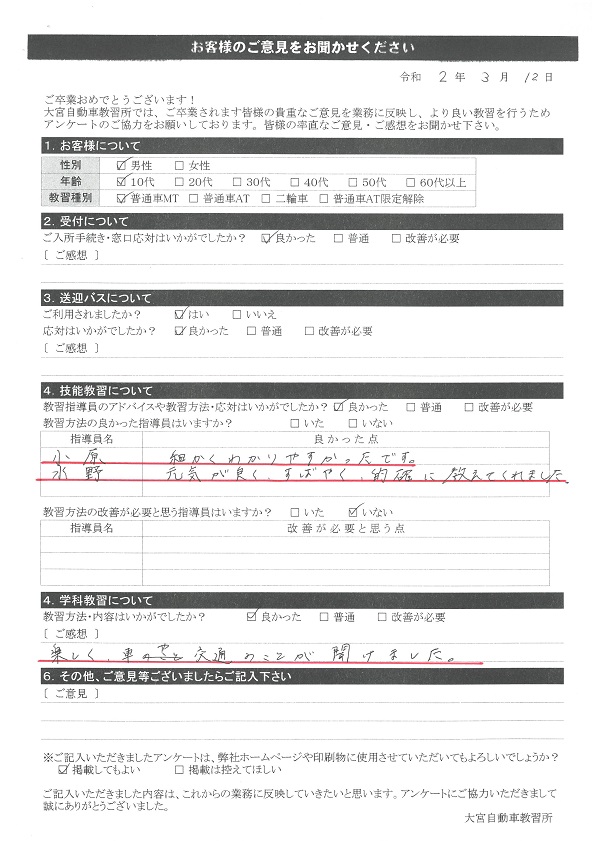 お客様のご意見をお聞かせください
令和 2 年 3 月 12 日
ご卒業おめでとうございます！
大宮自動車教習所では、ご卒業されます皆様の貴重なご意見を業務に反映し、より良い教習を行うため
アンケートのご協力をお願いしております。皆様の率直なご意見・ご感想をお聞かせ下さい。
1. お客様について
性別 ☑男性 □女性
年齢 ☑10代 □20代 □30代 □40代 □50代 □60代以上
教習種別 ☑普通車MT □普通車AT □二輪車 □普通車AT限定解除
2. 受付について
ご入所手続き・窓口応対はいかがでしたか？ ☑良かった □普通 □改善が必要
[ ご感想 ]
3. 送迎バスについて
ご利用されましたか？ ☑はい □いいえ
応対はいかがでしたか？ ☑良かった □普通 □改善が必要
[ ご感想 ]
4. 技能教習について
教習指導員のアドバイスや教習方法・応対はいかがでしたか？ ☑良かった □普通 □改善が必要
教習方法の良かった指導員はいますか？ □いた □いない
指導員名 良かった点
小原 細かくわかりやすかったです。
水野 元気が良く、すばやく、的確に教えてくれました
教習方法の改善が必要と思う指導員はいますか？ □いた ☑いない
指導員名 改善が必要と思う点
4. 学科教習について
教習方法・内容はいかがでしたか？ ☑良かった □普通 □改善が必要
[ ご感想 ]
楽しく、車のことや交通のことが聞けました。
6. その他、ご意見等ございましたらご記入下さい
[ ご意見 ]
※ご記入いただきましたアンケートは、弊社ホームページや印刷物に使用させていただいてもよろしいでしょうか？
☑掲載してもよい □掲載は控えてほしい
ご記入いただきました内容は、これからの業務に反映していきたいと思います。アンケートにご協力いただきまして
誠にありがとうございました。
大宮自動車教習所